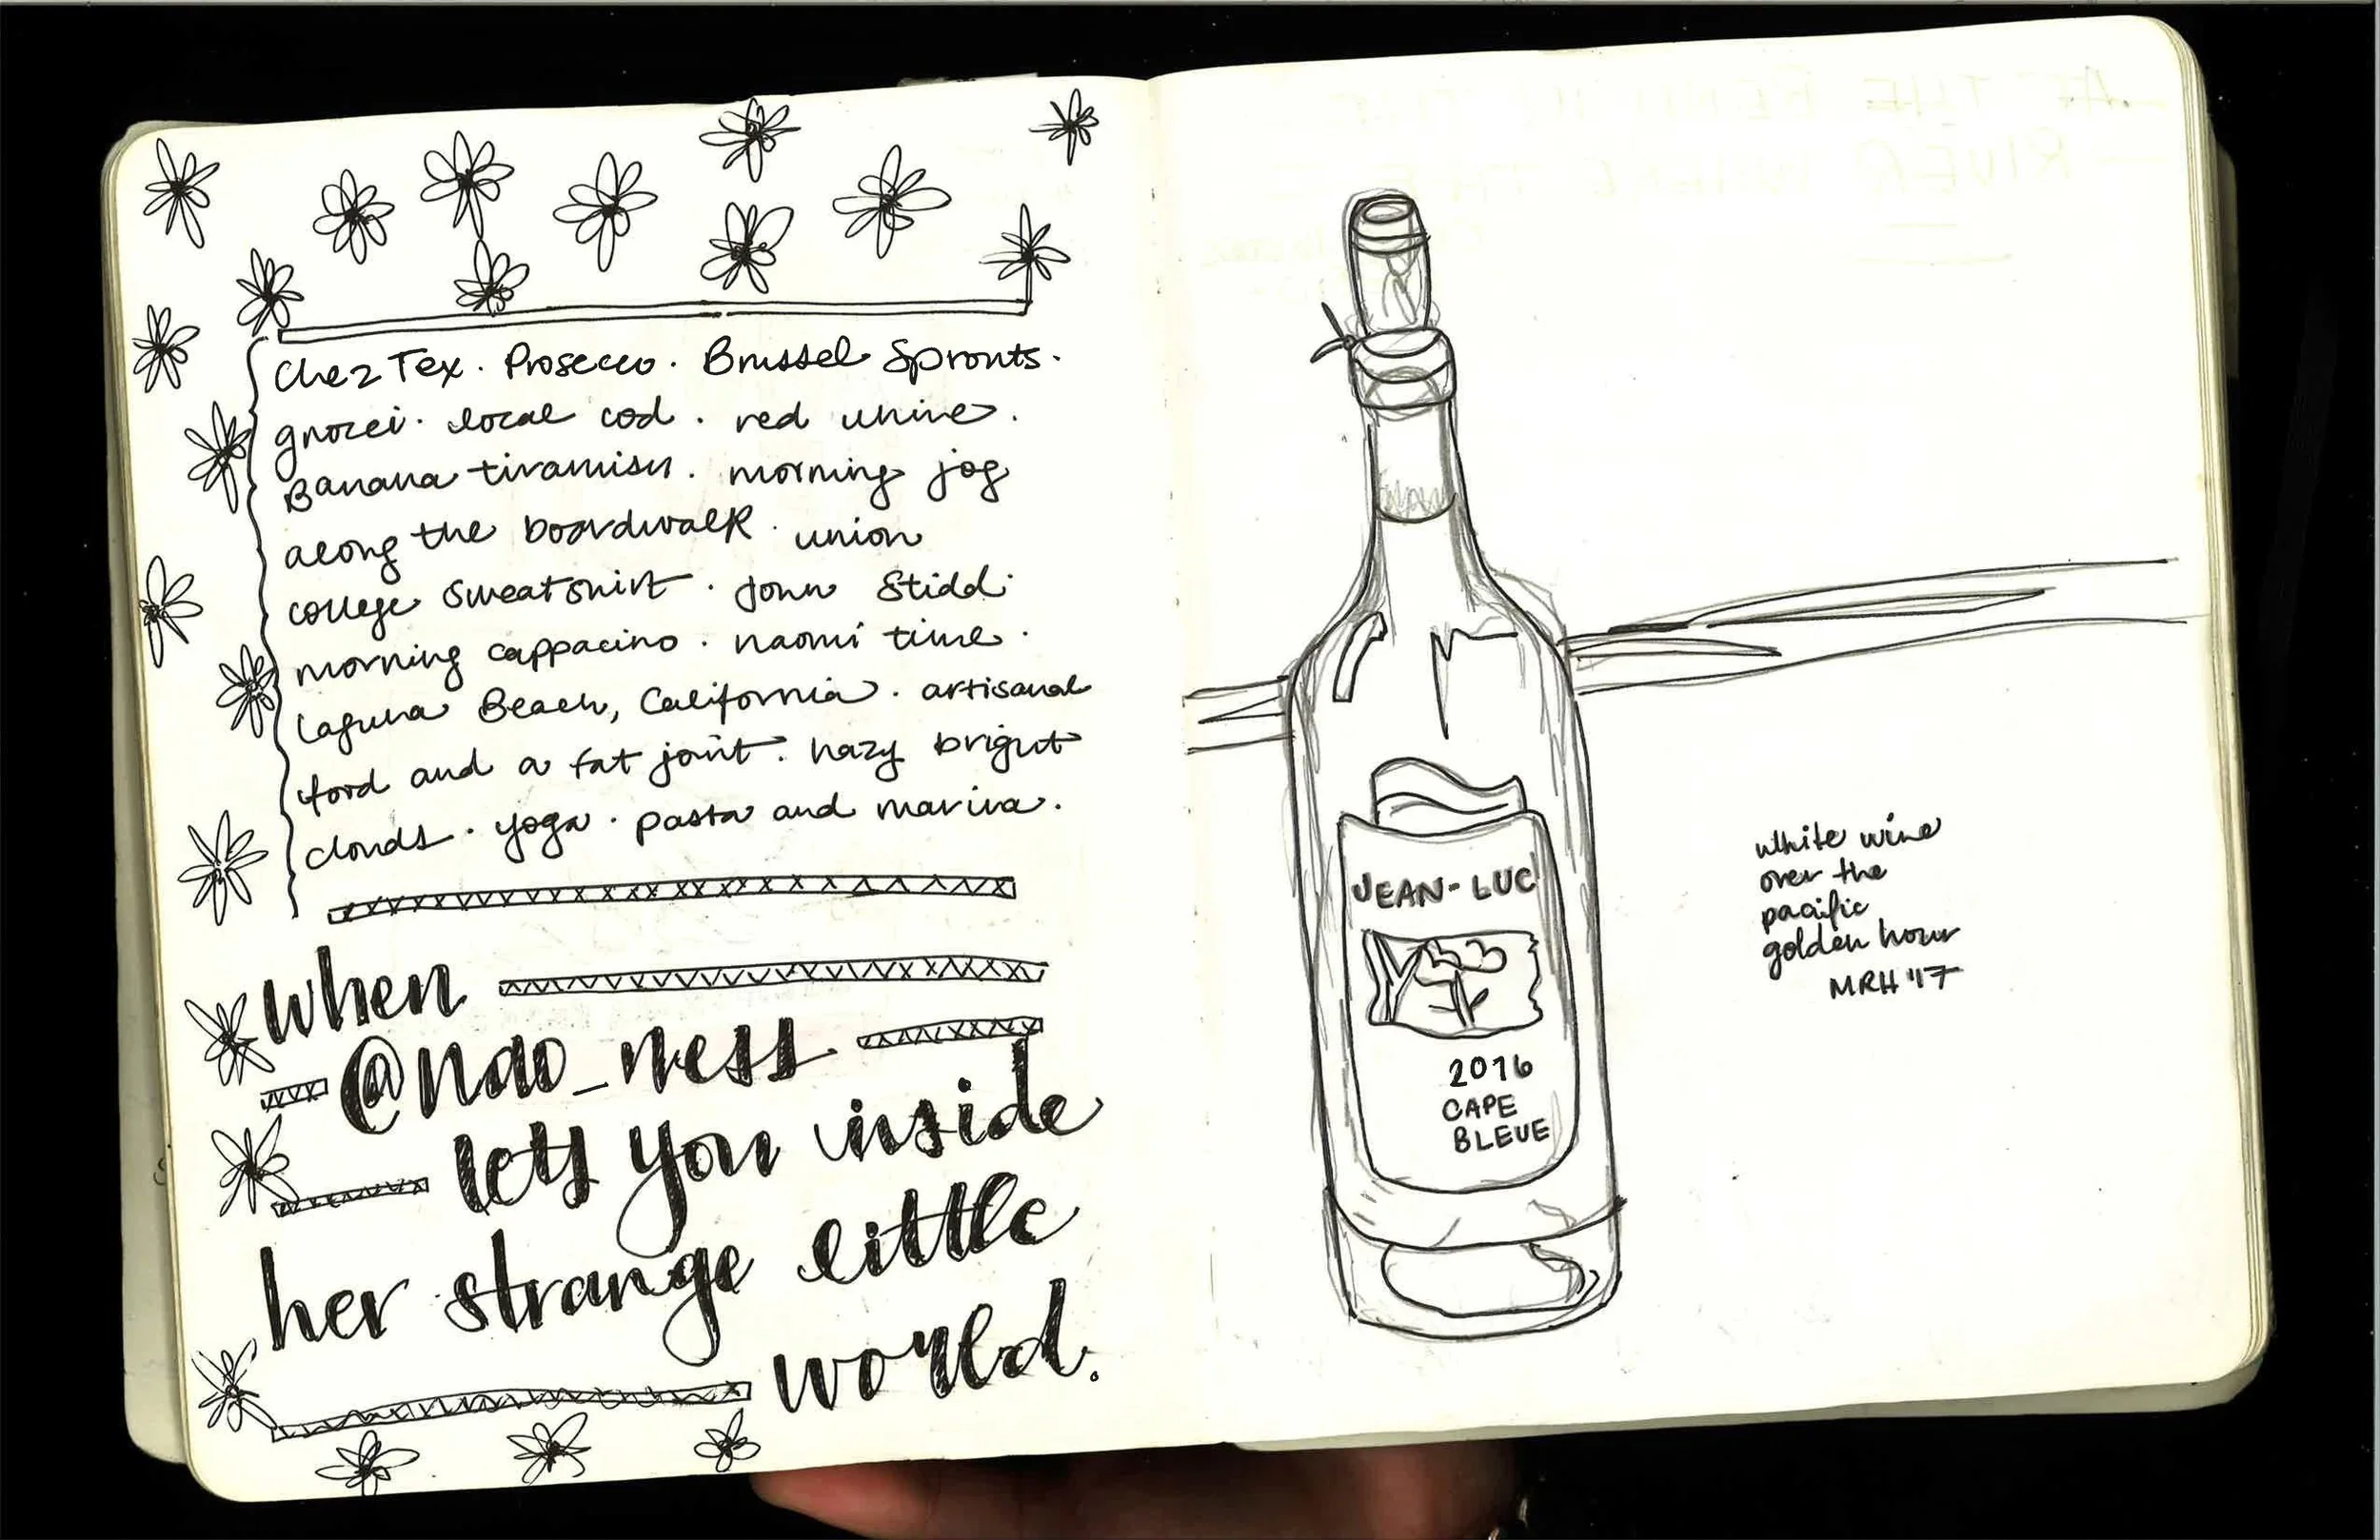 Chez Tex. Prosecco. Brussel Sprouts.
gnocci. local cod. red wine.
Banana tiramisu. morning jog
along the boardwalk. union
college sweatshirt. John Stidd.
morning cappacino. naomi time.
Laguna Beach, California. artisanal
food and a fat joint. hazy bright
clouds. yoga. pasta and marina.
when
@nao_ness
lets you inside
her strange little
world.
JEAN-LUC
2016
CAPE
BLEUE
white wine
over the
pacific
golden hour
MRH '17